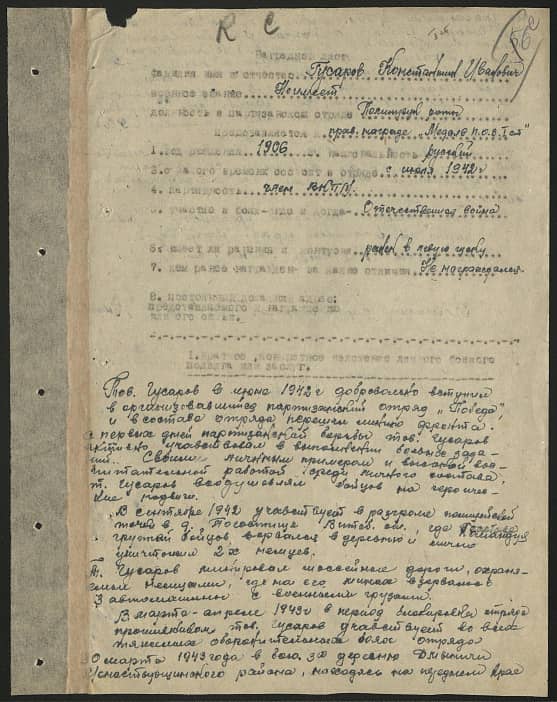 R C
56с
Наградной лист
фамилия имя и отчество Гусаров Константин Иванович
военное звание
должность в партизанском отряде Политрук роты
представляется к прав. награде "Медаль П.О.В. I ст"
1. год рождения 1906 2. национальность русский
3. с какого времени состоит в отряде с июля 1942 г
4. партийность член ВКП/б/
5. участие в боях Отечественная война
6. имеет ли ранения и контузии ранен в левую
7. чем ранее награжден за какие отличия Не награждался
8. постоянный домашний адрес:
представляемого к награде
или его семьи.
1. Краткое, конкретное изложение личного боевого
подвига или заслуг.
Тов. Гусаров в июне 1942 г добровольно вступил
в организовавшийся партизанский отряд "Победа"
и в составе отряда перешел линию фронта.
первых дней партизанской борьбы тов. Гусаров
активно участвовал в выполнении боевых зада-
ний. Своим личным примером и высокой вос-
питательной работой среди личного состава
т. Гусаров воодушевлял бойцов на героичес-
кие подвиги.
В сентябре 1942 участвует в разгроме полицейской
в д. Витеб. обл, где командуя
группой бойцов, ворвался в деревню и лично
уничтожил 2х немцев.
Т. Гусаров минировал шоссейные дороги, охран-
яемые немцами, где на его минах взорвалось
3 автомашины с военными грузами.
В марте-апреле 1943 г в период блокировки отряда
противником, тов. Гусаров участвует во всех
тяжелых оборонительных боях отряда
марта 1943 года в бою за деревню
района, находясь на переднем крае